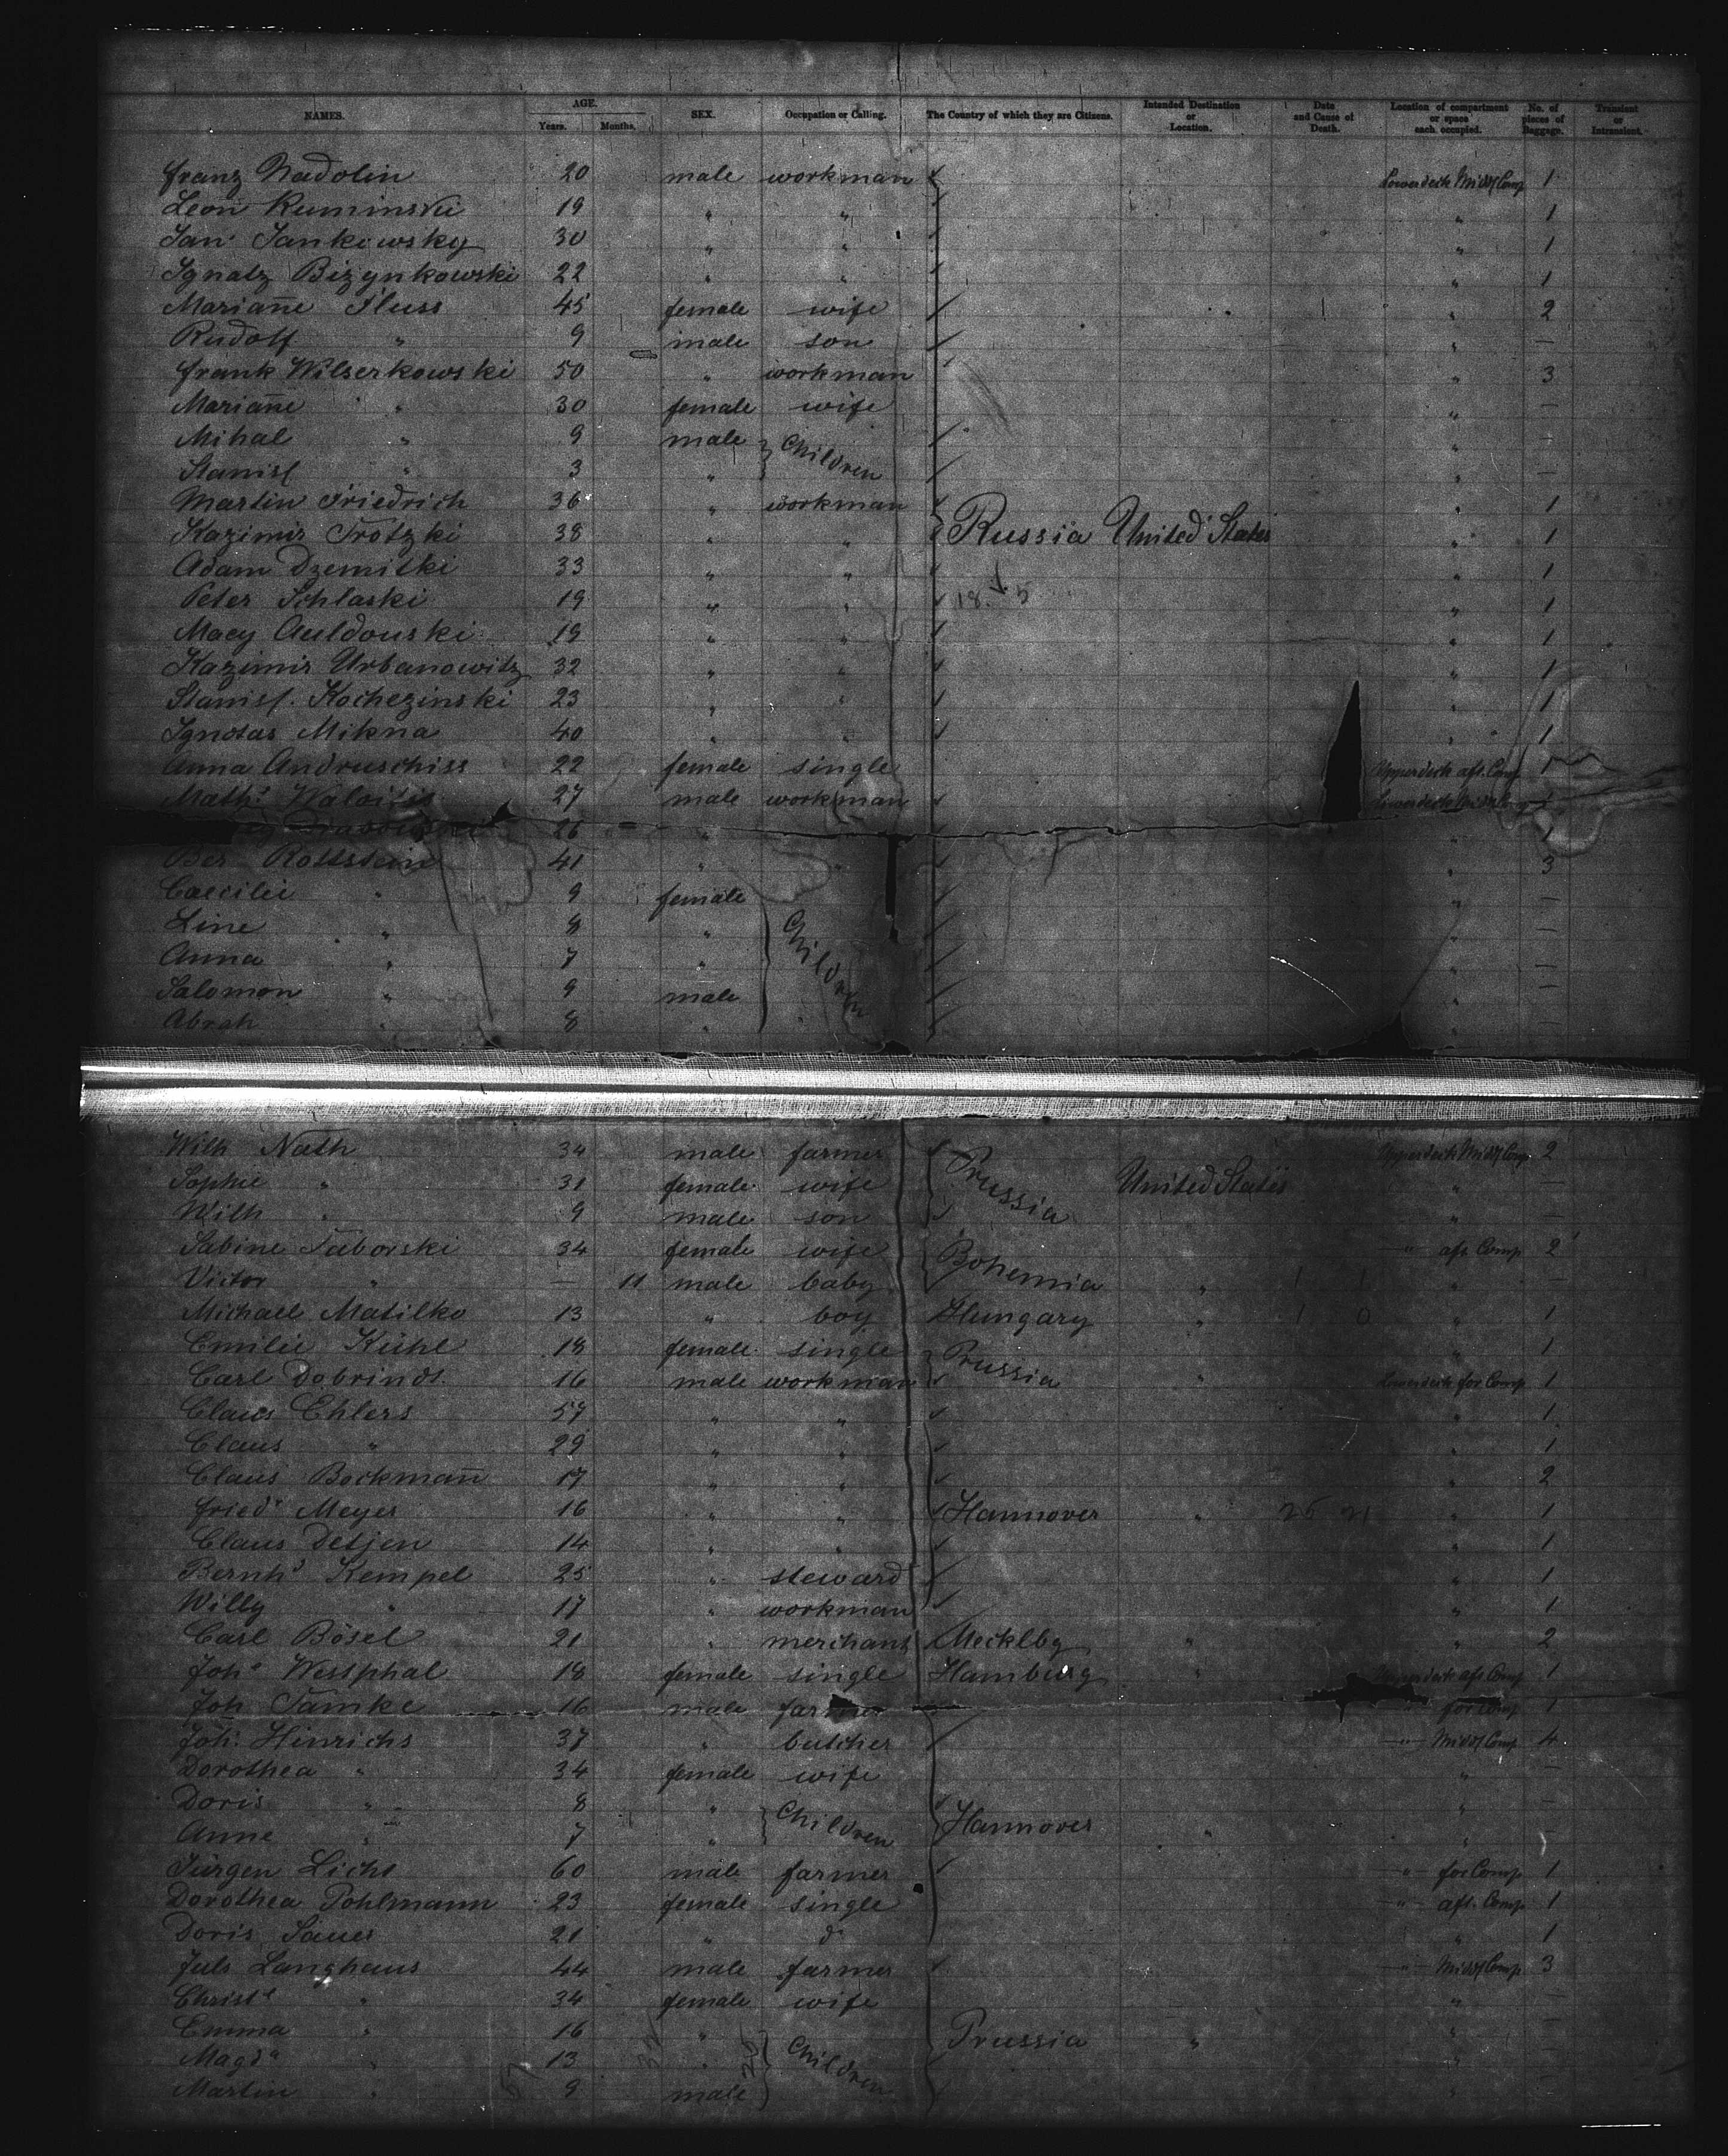 NAMES. AGE. Years. Months. SEX. Occupation or Calling. The Country of which they are Citizens. Intended Destination or Location. Date and Cause of Death. Location of compartment or space each occupied. No. of pieces of Baggage. Transient or Intransient.
Franz Nadolin 20 male workman Lowerdeck Midd Comp 1
Leon Ruminski 19 " " " 1
Jan Jankowsky 30 " " " 1
Ignatz Bizynkowski 22 " " " 1
Mariane Fluss 45 female wife " 2
Rudolf " 9 male son " —
Frank Wilserkowski 50 " workman " 3
Mariane " 30 female wife " —
Mihal " 9 male Children " —
Stanisl " 3 " " —
Martin Friedrich 36 " workman " 1
Kazimir Trotzki 38 " " Russia United States " 1
Adam Dzemitki 33 " " " 1
Peter Schlaski 19 " " 18 5 " 1
Macy Auldouski 19 " " " 1
Kazimir Urbanowitz 32 " " " 1
Stanisl. Kochezinski 23 " " " 1
Ignotas Mikna 40 " " " 1
Anna Andruschiss 22 female single Upperdeck aft. Comp 1
Math. 27 male workman Lowerdeck Midd Comp 1
26 " " 1
Ber Rottstein 41 " " " 3
Caecilie " 9 female Children " —
Line " 8 " " —
Anna " 7 " " —
Salomon " 9 male " —
Abrah " 8 " " —
Wilh Nath 34 male farmer Prussia United States Upperdeck Midd Comp 2
Sophie " 31 female wife " —
Wilh " 9 male son " —
Sabine Taborski 34 female wife Bohemia " aft Comp 2
Victor " — 11 male baby " 1 1 " —
Michael Matilko 13 " boy Hungary " 1 0 " 1
Emilie Kühl 18 female single Prussia " 1
Carl Dobrindt 16 male workman " Lowerdeck for Comp 1
Claus Ehlers 57 " " " 1
Claus " 29 " " " 1
Claus Bockmann 17 " " " 2
Fried. Meyer 16 " " Hannover " 25 21 " 1
Claus Detjen 14 " " " 1
Bernhd Kempel 25 " steward " 1
Willy " 17 " workman " 1
Carl Bösel 21 " merchant Mecklbg " " 2
Joh. Westphal 18 female single Hamburg " aft Comp 1
Joh Tamke 16 male farmer " for Comp 1
Joh. Hinrichs 37 " butcher " Midd Comp 4
Dorothea " 34 female wife " —
Doris " 8 " Children Hannover " " —
Anne " 7 " " —
Jürgen Licht 60 male farmer " for Comp 1
Dorothea Pohlmann 23 female single " aft. Comp 1
Doris Sauer 21 " do " 1
Juls Langhans 44 male farmer " Midd Comp 3
Christe " 34 female wife " —
Emma " 16 " Children Prussia " " —
Magda " 13 " " —
Martin " 9 male " —